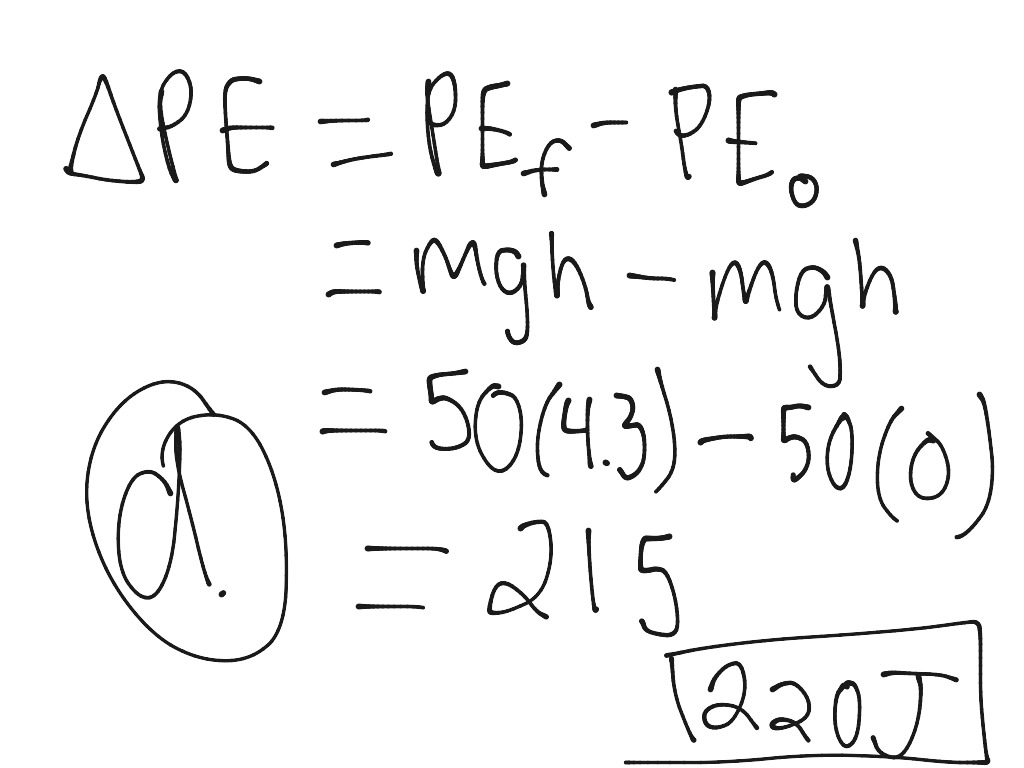 ΔPE = PEf - PE₀
= mgh - mgh
= 50(4.3) - 50(0)
d.
= 215
220J